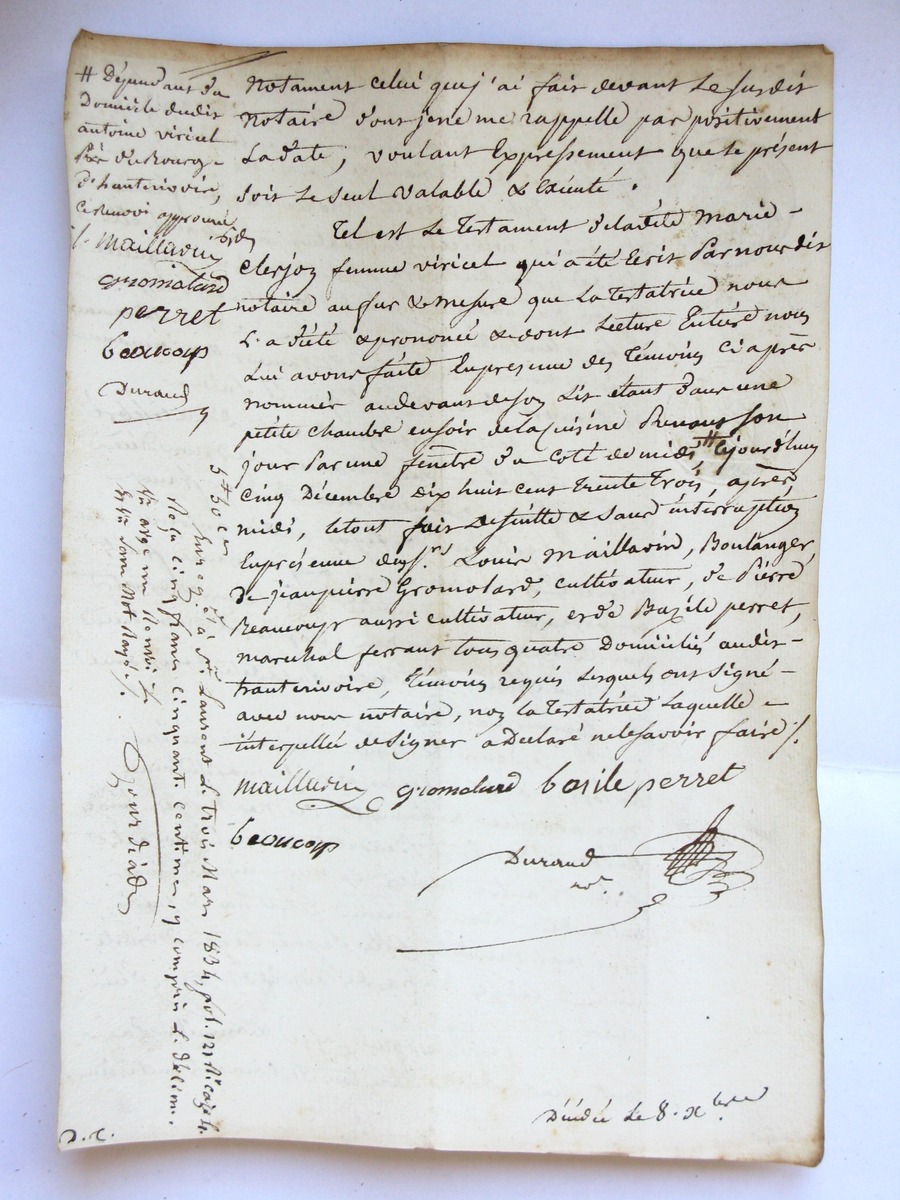 # Dépendant du
Domicile dudit
antoine viricel
père du Bourg
d'hauterivoire,
Ce Renvoi approuvé
Maillavin
gromolard
perret
beaucoup
Durand
notament celui que j'ai fait devant le susdit
notaire dont je ne me rappelle pas positivement
la date, voulant Expressement que le présent
soit le seul valable & Exécuté.
Tel est le Testament de ladite marie
Clerjon femme viricel qui a été Ecrit Par nousdit
notaire au fur & mesure que la testatrice nous
l'a dicté & prononcé & dont lecture Entière nous
lui avons faite En présence des Témoins Ci après
nommés au devant de son Lit étant dans une
petite chambre en soir de la Cuisine Prenant son
jour Par une fenètre du Coté de midi # cejourd'huy
Cinq Décembre dix huit cent trente trois, après
midi, le tout fait de suitte & sans interruption
En présence des Srs. Louis Maillavin, Boulanger,
de jean pierre Gromolard, cultivateur, de Pierre
Beaucoup aussi cultivateur, et de Bazile perret,
marechal ferrant tous quatre Domiciliés audit
hauterivoire, Témoins requis lesquels ont signé
avec nous notaire, non la testatrice laquelle
interpellée de signer a Déclaré ne le savoir faire
Maillavin gromolard basile perret
beaucoup
Durand
not.
5f 50 c
Enreg. à St Laurent le trois Mars 1834, fol. 121 R. case 4.
Reçu cinq francs cinquante centimes, y compris le décime.
un Renvoi
mot Rayé
D. C.
le 8. Xbre